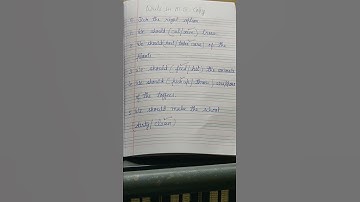 Write in H.W. Copy
Q Give the right option
1 We should (cut/save) trees
2 We should (cut/take care) of the
plants
3 We should (feed/hit) the animals
4 We should (pick up/throw)
the toffee
5 We should make the school
dirty/(clean)